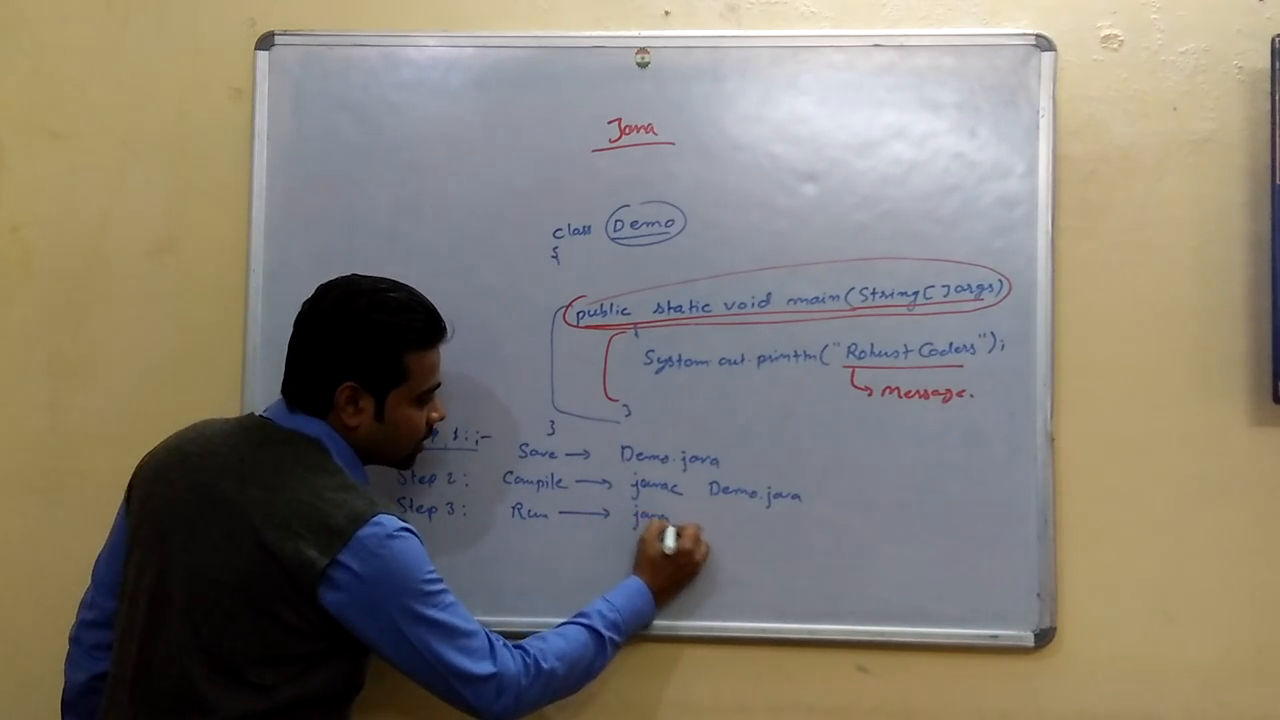 Java
class Demo
{
public static void main(String[]args)
{
System.out.println("Robust Coders");
Message.
}
}
1:-
Save → Demo.java
Step 2: Compile → javac Demo.java
Step 3: Run → java